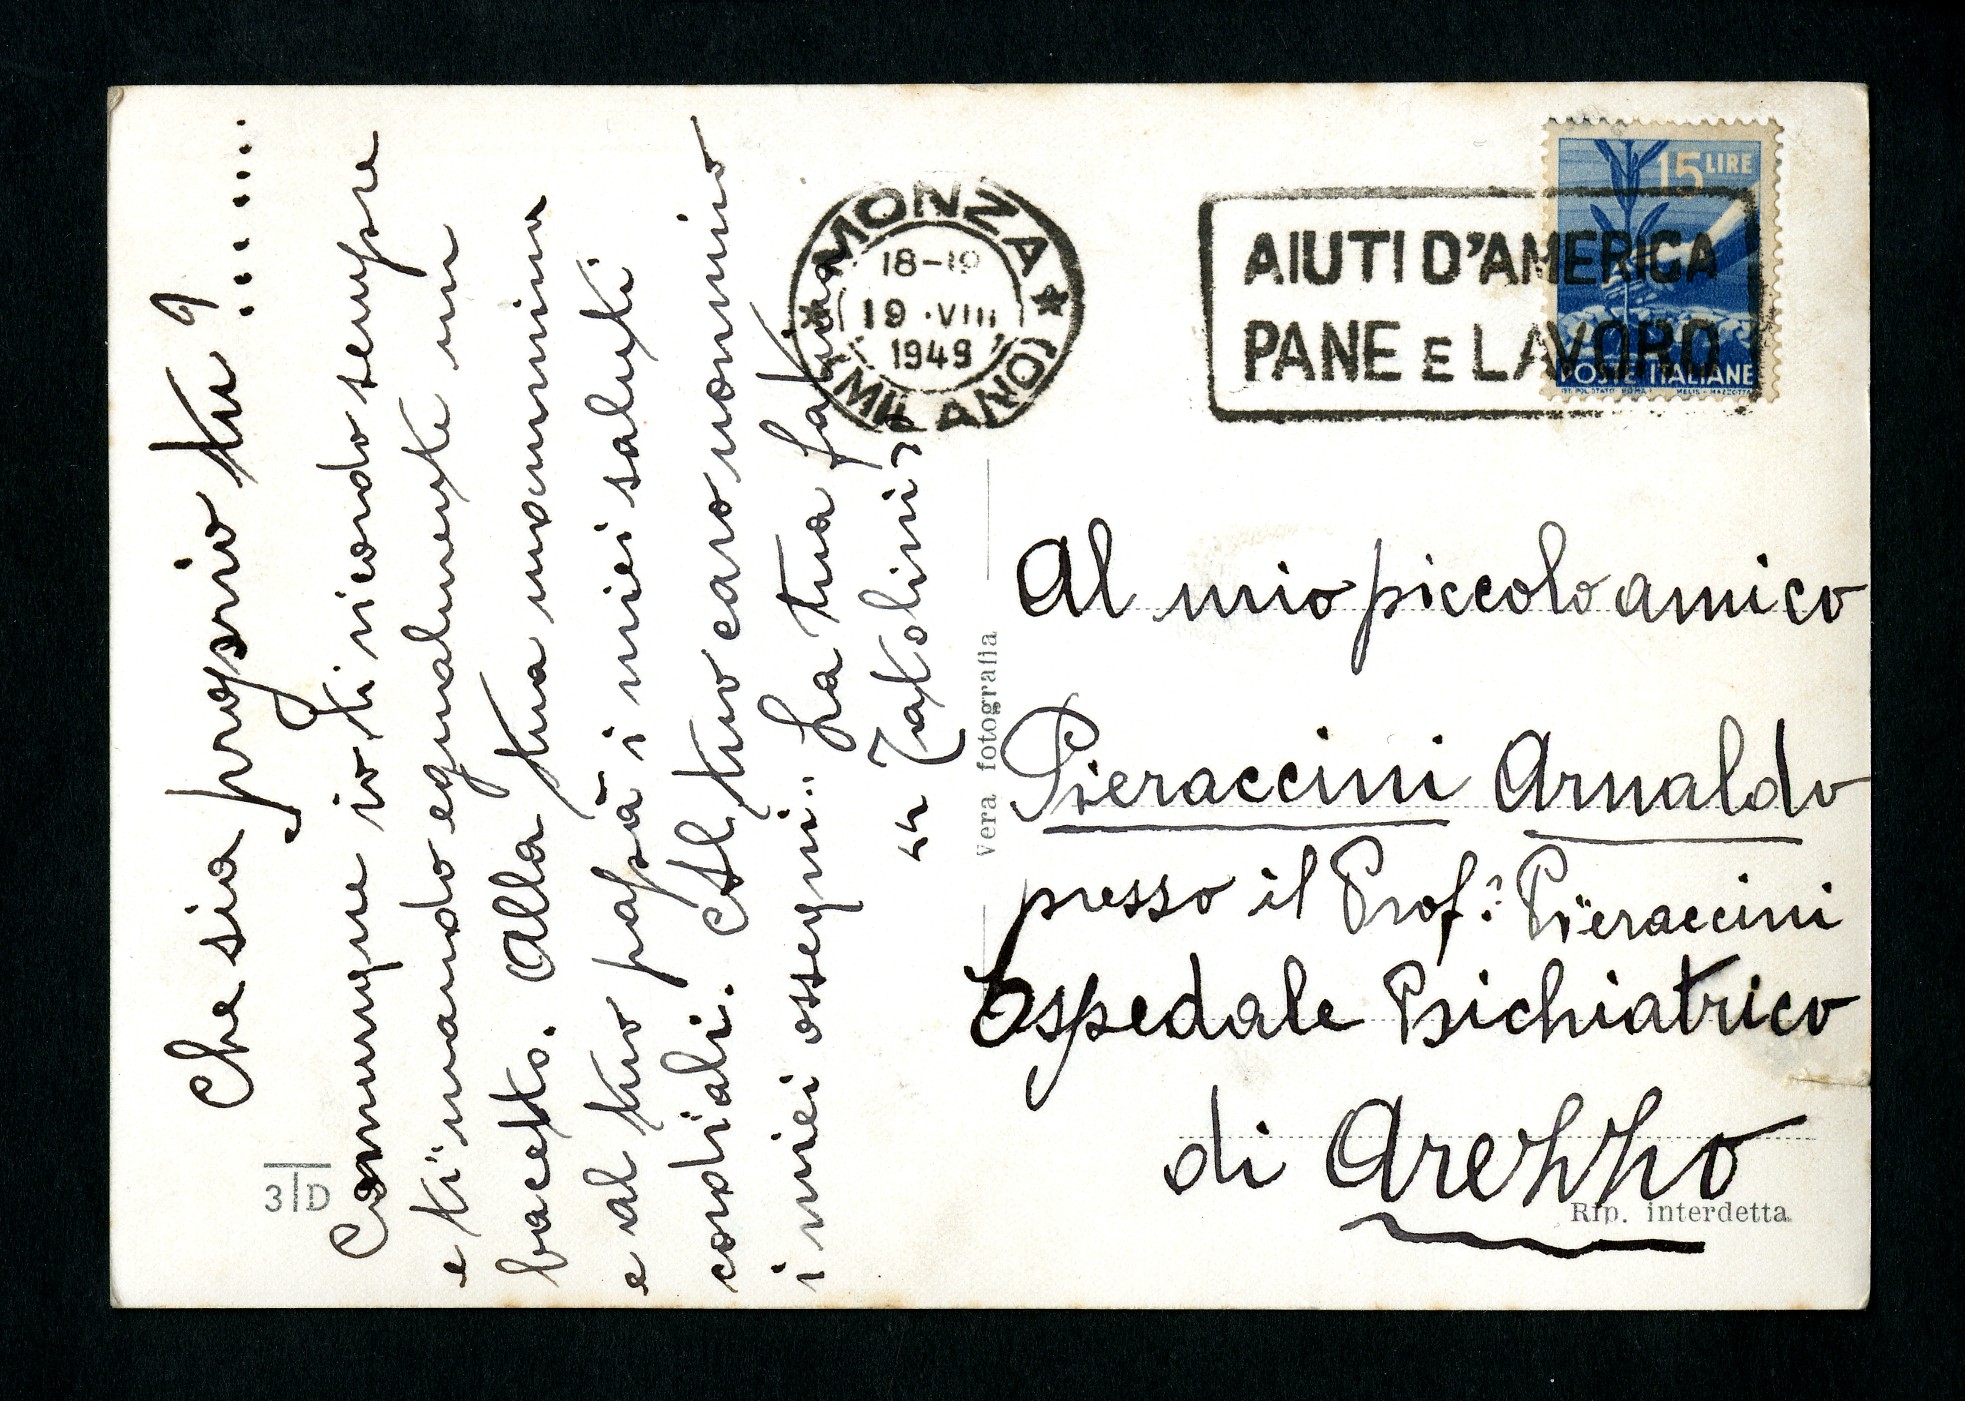 Che sia proprio tu? ........
Comunque io ti ricordo sempre
e ti mando egualmente un
bacetto. Alla tua mammina
e al tuo papà i miei saluti
cordiali. Al tuo caro nonnino
i miei ossequi.. La tua fatina
"Tatolini"
Vera fotografia
3 D
MONZA
18-19
19 · VIII
1949
(MILANO)
AIUTI D'AMERICA
PANE E LAVORO
15 LIRE
POSTE ITALIANE
IST. POL. STATO ROMA MELIS - MAZZOTTA
Al mio piccolo amico
Pieraccini Arnaldo
presso il Prof: Pieraccini
Ospedale Psichiatrico
di Arezzo
Rip. interdetta